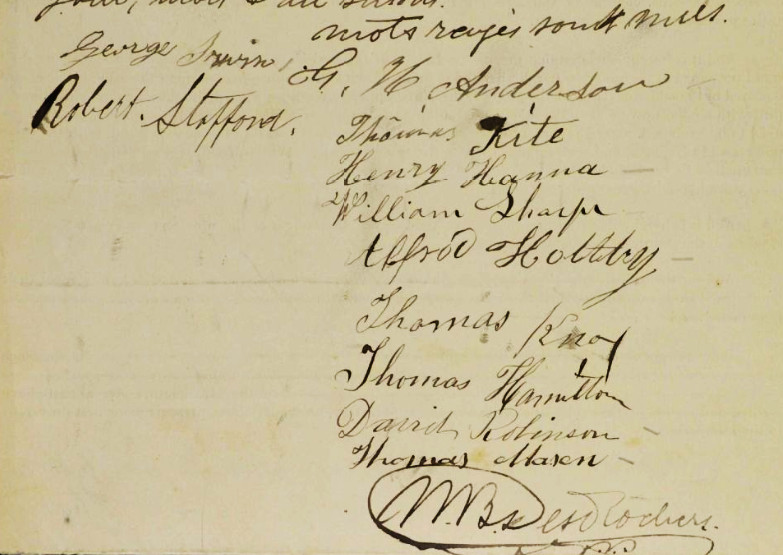 mots rayés sont nuls.
George Irwin,
G. W Anderson
Robert. Stafford.
Thomas Kite
Henry Hanna
William Sharpe
Alfrod Holtby
Thomas Knox
Thomas Hamilton
David Robinson
Thomas Mason
M. B. DesRochers.